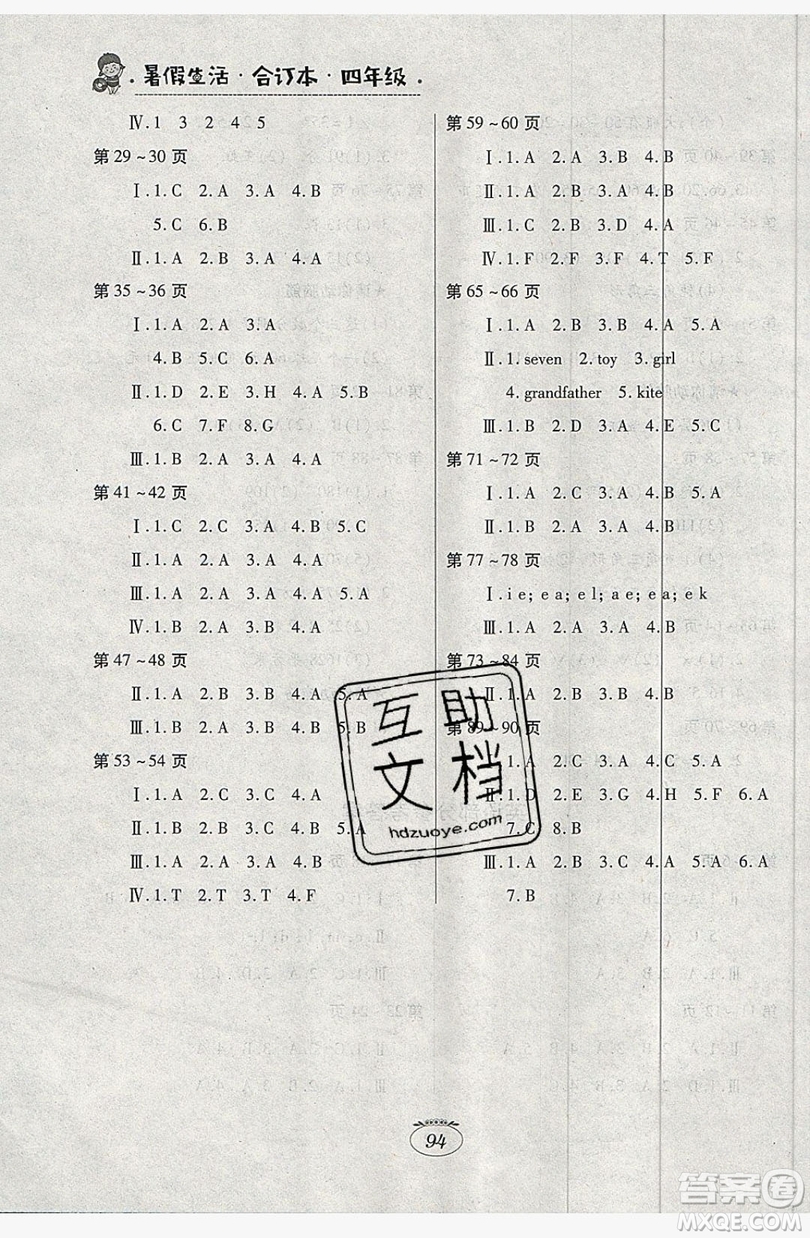 暑假生活·合订本·四年级
Ⅳ.1 3 2 4 5
第29~30页
Ⅰ.1.C 2.A 3.A 4.B
5.C 6.B
Ⅱ.1.A 2.A 3.A 4.A
第35~36页
Ⅰ.1.A 2.A 3.A
4.B 5.C 6.A
Ⅱ.1.D 2.E 3.H 4.A 5.B
6.C 7.F 8.G
Ⅲ.1.B 2.A 3.A 4.A
第41~42页
Ⅰ.1.C 2.C 3.A 4.B 5.C
Ⅱ.1.A 2.A 3.A 4.A
Ⅲ.1.B 2.A 3.A 4.A 5.A
Ⅳ.1.A 2.A 3.A 4.B
第47~48页
Ⅱ.1.A 2.B 3.B 4.A 5.A
Ⅲ.1.B 2.A 3.A 4.B 5.B
第53~54页
Ⅰ.1.A 2.C 3.C 4.A
Ⅱ.1.B 2.B 3.A 4.A 5.A
Ⅲ.1.B 2.B 3.B 4.A
Ⅳ.1.T 2.T 3.T 4.F
第59~60页
Ⅰ.1.A 2.A 3.B 4.B
Ⅱ.1.A 2.B 3.A 4.A
Ⅲ.1.C 2.B 3.D 4.A
Ⅳ.1.F 2.F 3.F 4.T 5.F
第65~66页
Ⅰ.1.A 2.B 3.B 4.A 5.A
Ⅱ.1.seven 2.toy 3.girl
4.grandfather 5.kite
Ⅲ.1.B 2.D 3.A 4.E 5.C
第71~72页
Ⅰ.1.A 2.C 3.A 4.B 5.A
Ⅱ.1.B 2.A 3.A 4.B
第77~78页
Ⅰ.ie;ea;el;ae;ea;ek
Ⅲ.1.B 2.A 3.A 4.B
第73~84页
Ⅱ.1.A 2.B 3.A 4.B
第89~90页
Ⅰ.1.B 2.A 3.A 4.C 5.A
Ⅱ.1.D 2.E 3.G 4.H 5.F 6.A
7.C 8.B
Ⅲ.1.C 2.B 3.C 4.A 5.A 6.A
7.B
互助
文档
hdzuoye.com
94
答案圈
MXQE.COM